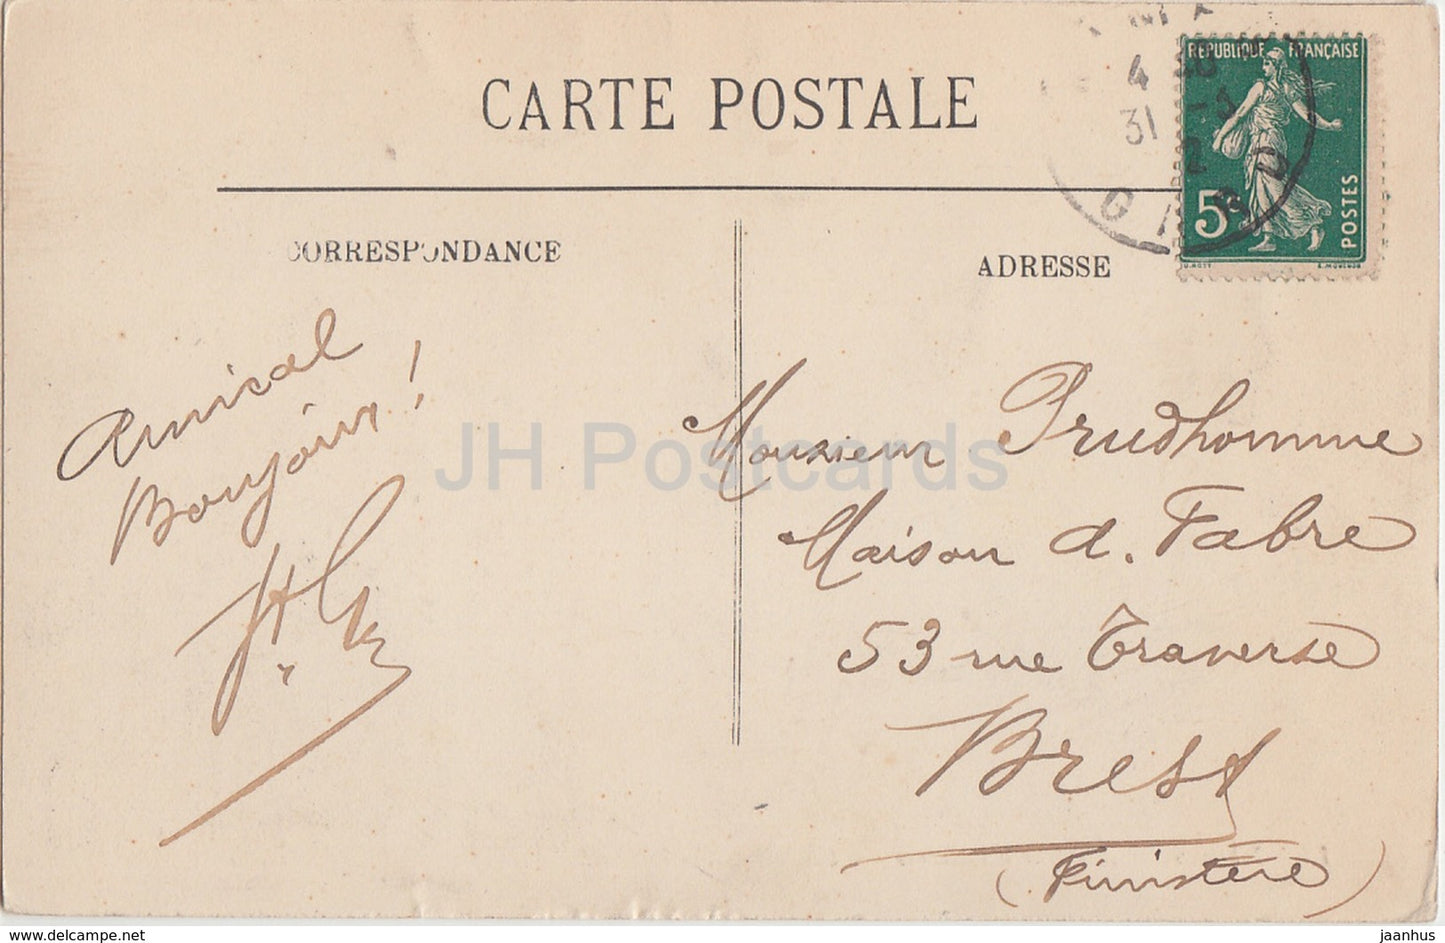 CARTE POSTALE
RÉPUBLIQUE FRANÇAISE
5c
POSTES
4
31 -3
2
GARD
CORRESPONDANCE
ADRESSE
Amical
Bonjour!
Monsieur Prudhomme
Maison A. Fabre
53 rue Traverse
Brest
(Finistère)
JH Postcards
www.delcampe.net
jaanhus